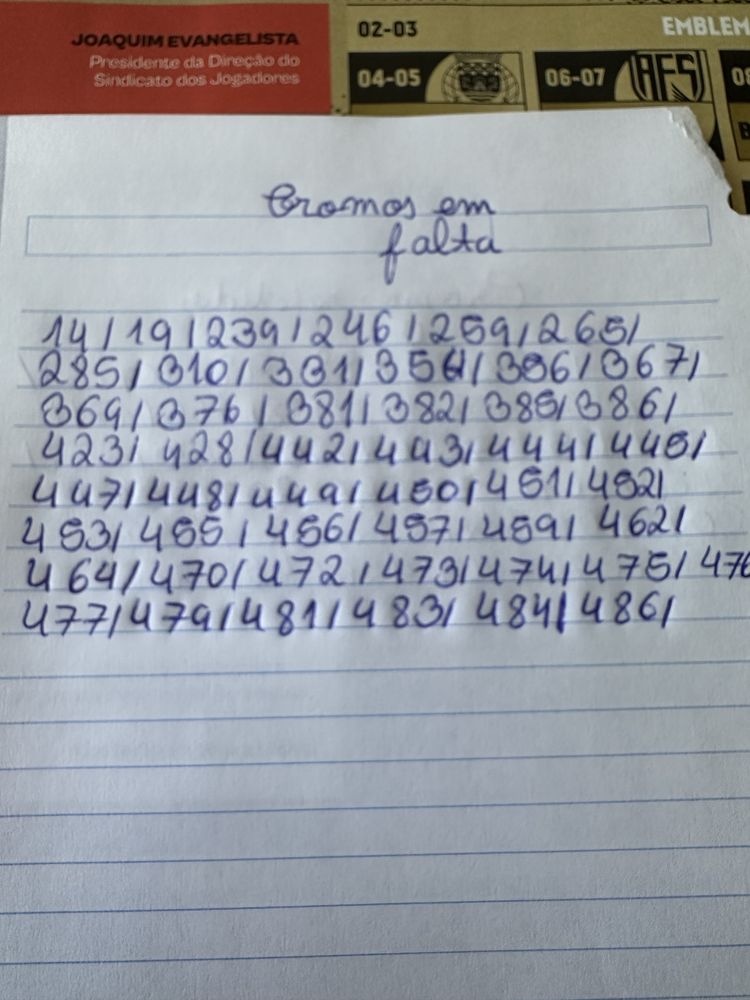 JOAQUIM EVANGELISTA
Presidente da Direção do
Sindicato dos Jogadores
02-03
EMBLEM
04-05
06-07
AFS
08
Cromos em
falta
14/19/239/246/259/265/
285/310/331/354/356/367/
369/376/381/382/385/386/
423/428/442/443/444/445/
447/448/449/450/451/452/
453/455/456/457/459/462/
464/470/472/473/474/475/476
477/479/481/483/484/486/